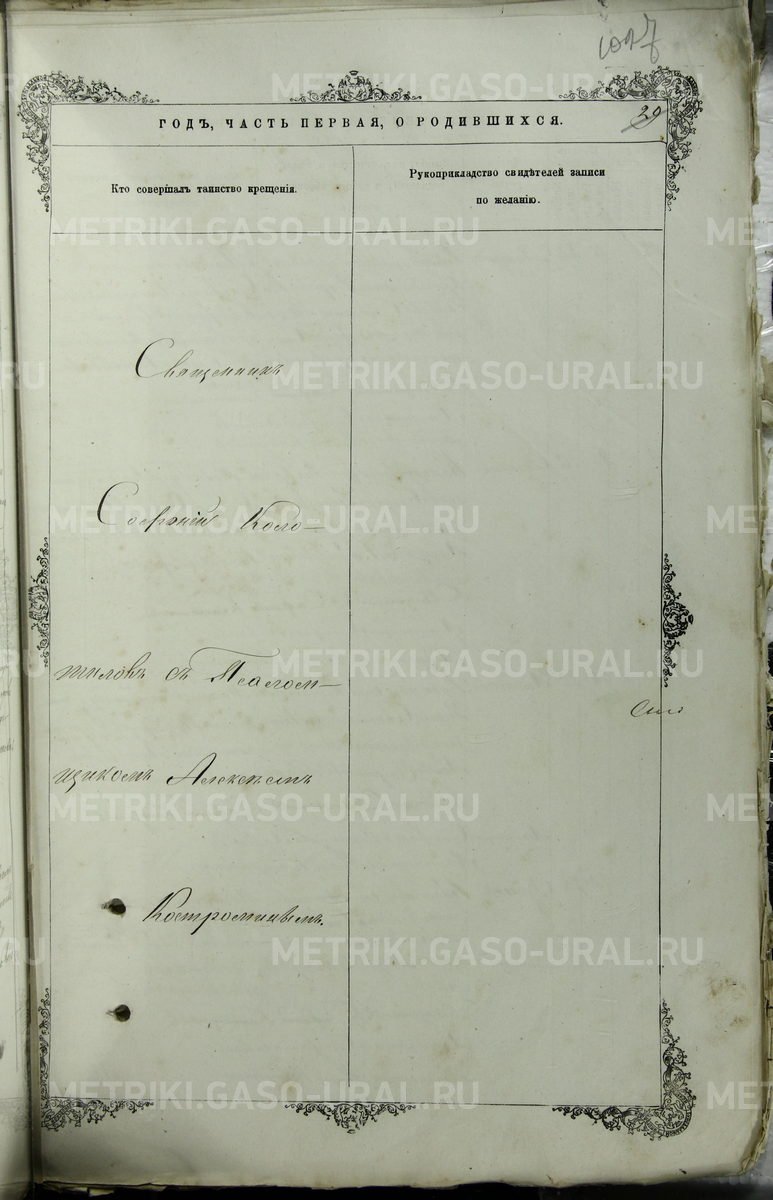 1017
39
ГОДЪ, ЧАСТЬ ПЕРВАЯ, О РОДИВШИХСЯ.
Кто совершалъ таинство крещенія.
Рукоприкладство свидѣтелей записи
по желанію.
Священникъ
Софроній Коло-
тиловъ съ Псалом-
щикомъ Алексѣемъ
Костроминымъ.
METRIKI.GASO-URAL.RU